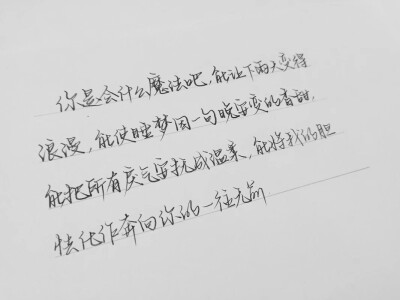 你是会什么魔法吧,能让下雨天变得
浪漫,能使睡梦因一句晚安变的香甜,
能把所有戾气安抚成温柔,能将我的胆
怯化作奔向你的一往无前